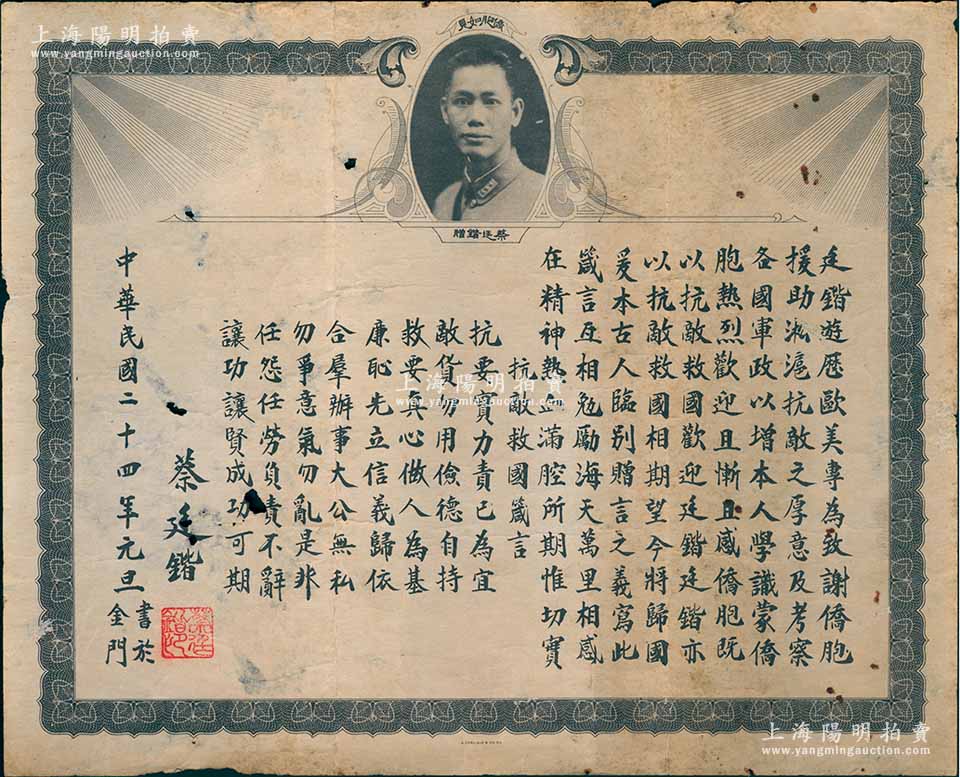 僑胞如見
蔡廷鍇贈
廷鍇遊歷歐美專為致謝僑胞
援助淞滬抗敵之厚意及考察
各國軍政以增本人學識蒙僑
胞熱烈歡迎且慚且感僑胞既
以抗敵救國歡迎廷鍇廷鍇亦
以抗敵救國相期望今將歸國
爰本古人臨別贈言之義寫此
箴言互相勉勵海天萬里相感
在精神熱血滿腔所期惟切實
抗敵救國箴言
抗要實力責已為宜
敵貨勿用儉德自持
救要真心做人為基
廉恥先立信義歸依
合羣辦事大公無私
勿爭意氣勿亂是非
任怨任勞負責不辭
讓功讓賢成功可期
蔡廷鍇
中華民國二十四年元旦
書於
金門
上海陽明拍賣
www.yangmingauction.com
上海陽明拍賣
www.yangmingauction.com
上海陽明拍賣
www.yangmingauction.com
上海陽明拍賣
www.yangmingauction.com
上海陽明拍賣
www.yangmingauction.com